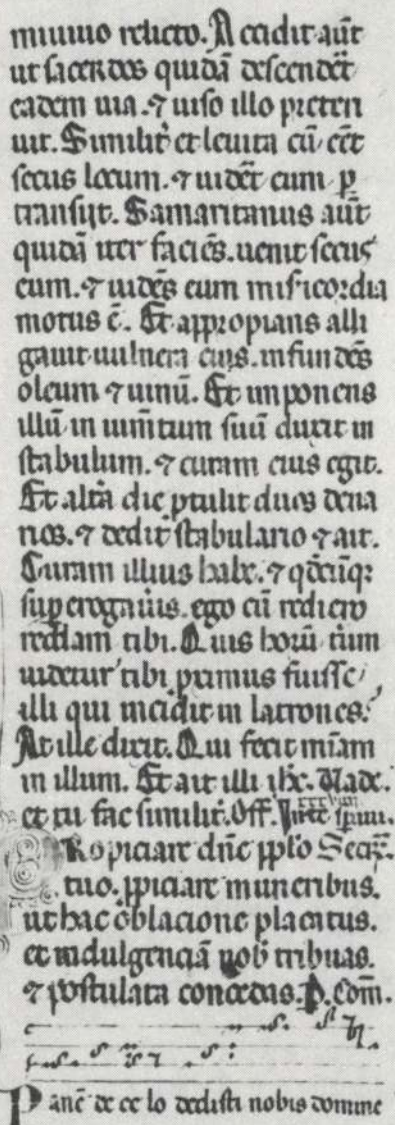 miuiuo relicto. Accidit aūt
ut sacerdos quidā descenderet
eadem uia. ⁊ uiso illo preteri
uit. Similit̉ et leuita cū eēt
secus locum. ⁊ uideret eum p̱
transijt. Samaritanus aūt
quidā iter faciēs. uenit secus
eum. ⁊ uidēs eum misericordia
motus ē. Et appropians alli
gauit uulnera eius. infundēs
oleum ⁊ uinū. Et imponens
illū in iumētum suū duxit in
stabulum. ⁊ curam eius egit.
Et alt̉a die p̱tulit duos dena
rios. ⁊ dedit stabulario ⁊ ait.
Curam illius habe. ⁊ qdcūq;
sup̱erogau̓is. ego cū rediero
reddam tibi. Quis horū t̓um
uidetur tibi proximus fuisse
illi qui incidit in latrones.
At ille dixit. Qui fecit mīam
in illum. Et ait illi ihc̄. Uade.
et tu fac similit̓. Off. 
Ropiciare dn̄e pp̱lo Secr̄.
tuo. ꝓpiciare muneribus.
ut hac oblacione placatus.
et indulgenciā nob̓ tribuas.
⁊ postulata concedas. P. Com̄.
Panē de ce lo dedisti nobis domine